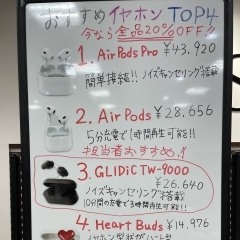 おすすめイヤホン TOP4
今なら全品20%OFF!!
1. AirPods Pro ¥43,920
簡単接続!! ノイズキャンセリング搭載
2. AirPods ¥28,656
5分充電で1時間再生可能!!
担当者おすすめ!!
3. GLIDiC TW-9000
¥26,640
ノイズキャンセリング搭載
10分間の充電で3時間再生可能!!
4. Heart Buds ¥14,976
イヤホン型状がハート型